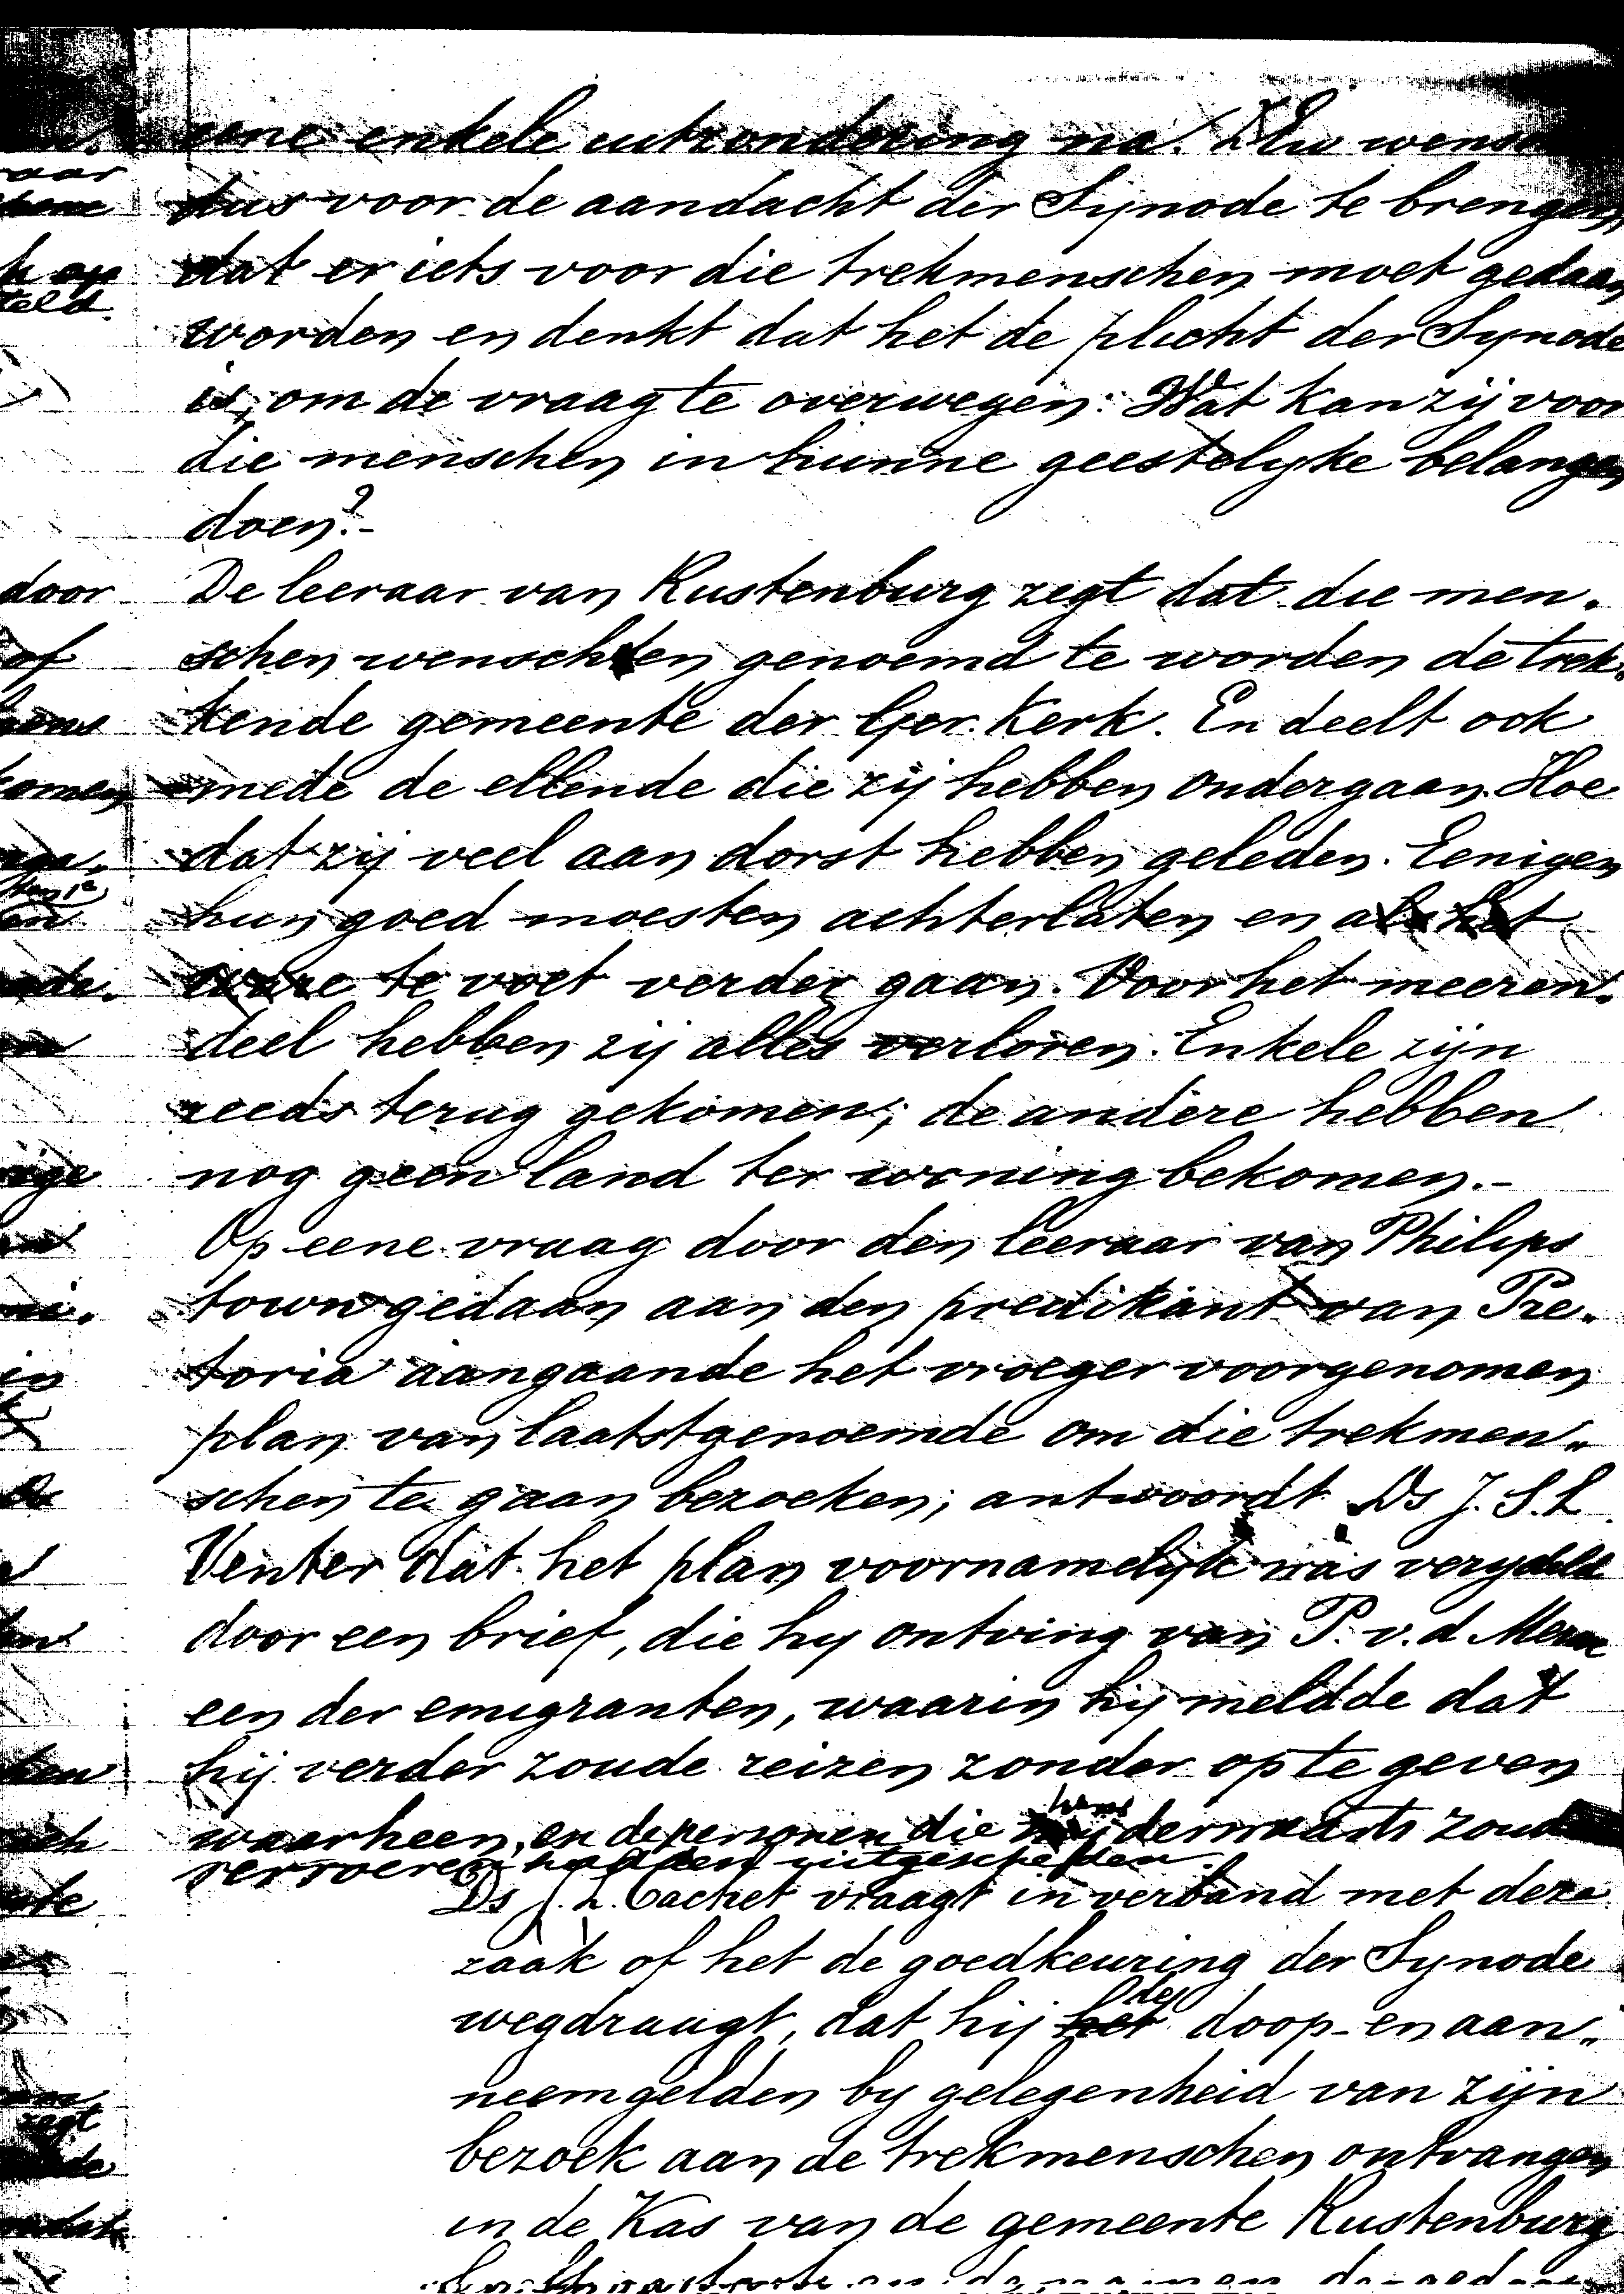 eene enkele uitzondering na. ZEw wensch
dus voor de aandacht der Synode te brengen,
dat er iets voor die trekmenschen moet gedaan
worden en denkt dat het de plicht der Synode
is, om de vraag te overwegen: Wat kan zij voor
die menschen in hunne geestelyke belangen
doen?-
De leeraar van Rustenburg zegt dat die men-
schen wenschten genoemd te worden de trek-
kende gemeente der Ger. Kerk. En deelt ook
mede de ellende die zij hebben ondergaan. Hoe
dat zij veel aan dorst hebben geleden. Eenigen
hun goed moesten achterlaten en als het
ware te voet verder gaan. Voor het meeren-
deel hebben zij alles verloren. Enkele zijn
reeds terug gekomen; de andere hebben
nog geen land ter woning bekomen.-
Op eene vraag door den leeraar van Philips
town gedaan aan den predikant van Pre-
toria aangaande het vroeger voorgenomen
plan van laatstgenoemde om die trekmen-
schen te gaan bezoeken, antwoordt Ds J. S. L.
Venter dat het plan voornamelijk was verydeld
door een brief, die hy ontving van P. v. d. Merwe
een der emigranten, waarin hij meldde dat
hij verder zoude reizen zonder op te geven
waarheen, en de personen die hem derwaarts zoud
vervoeren hadden uitgescheiden.
Ds F. L. Cachet vraagt in verband met deze
zaak of het de goedkeuring der Synode
wegdraagt, dat hij het de doop- en aan-
neemgelden by gelegenheid van zijn
bezoek aan de trekmenschen ontvangen
in de Kas van de gemeente Rustenburg